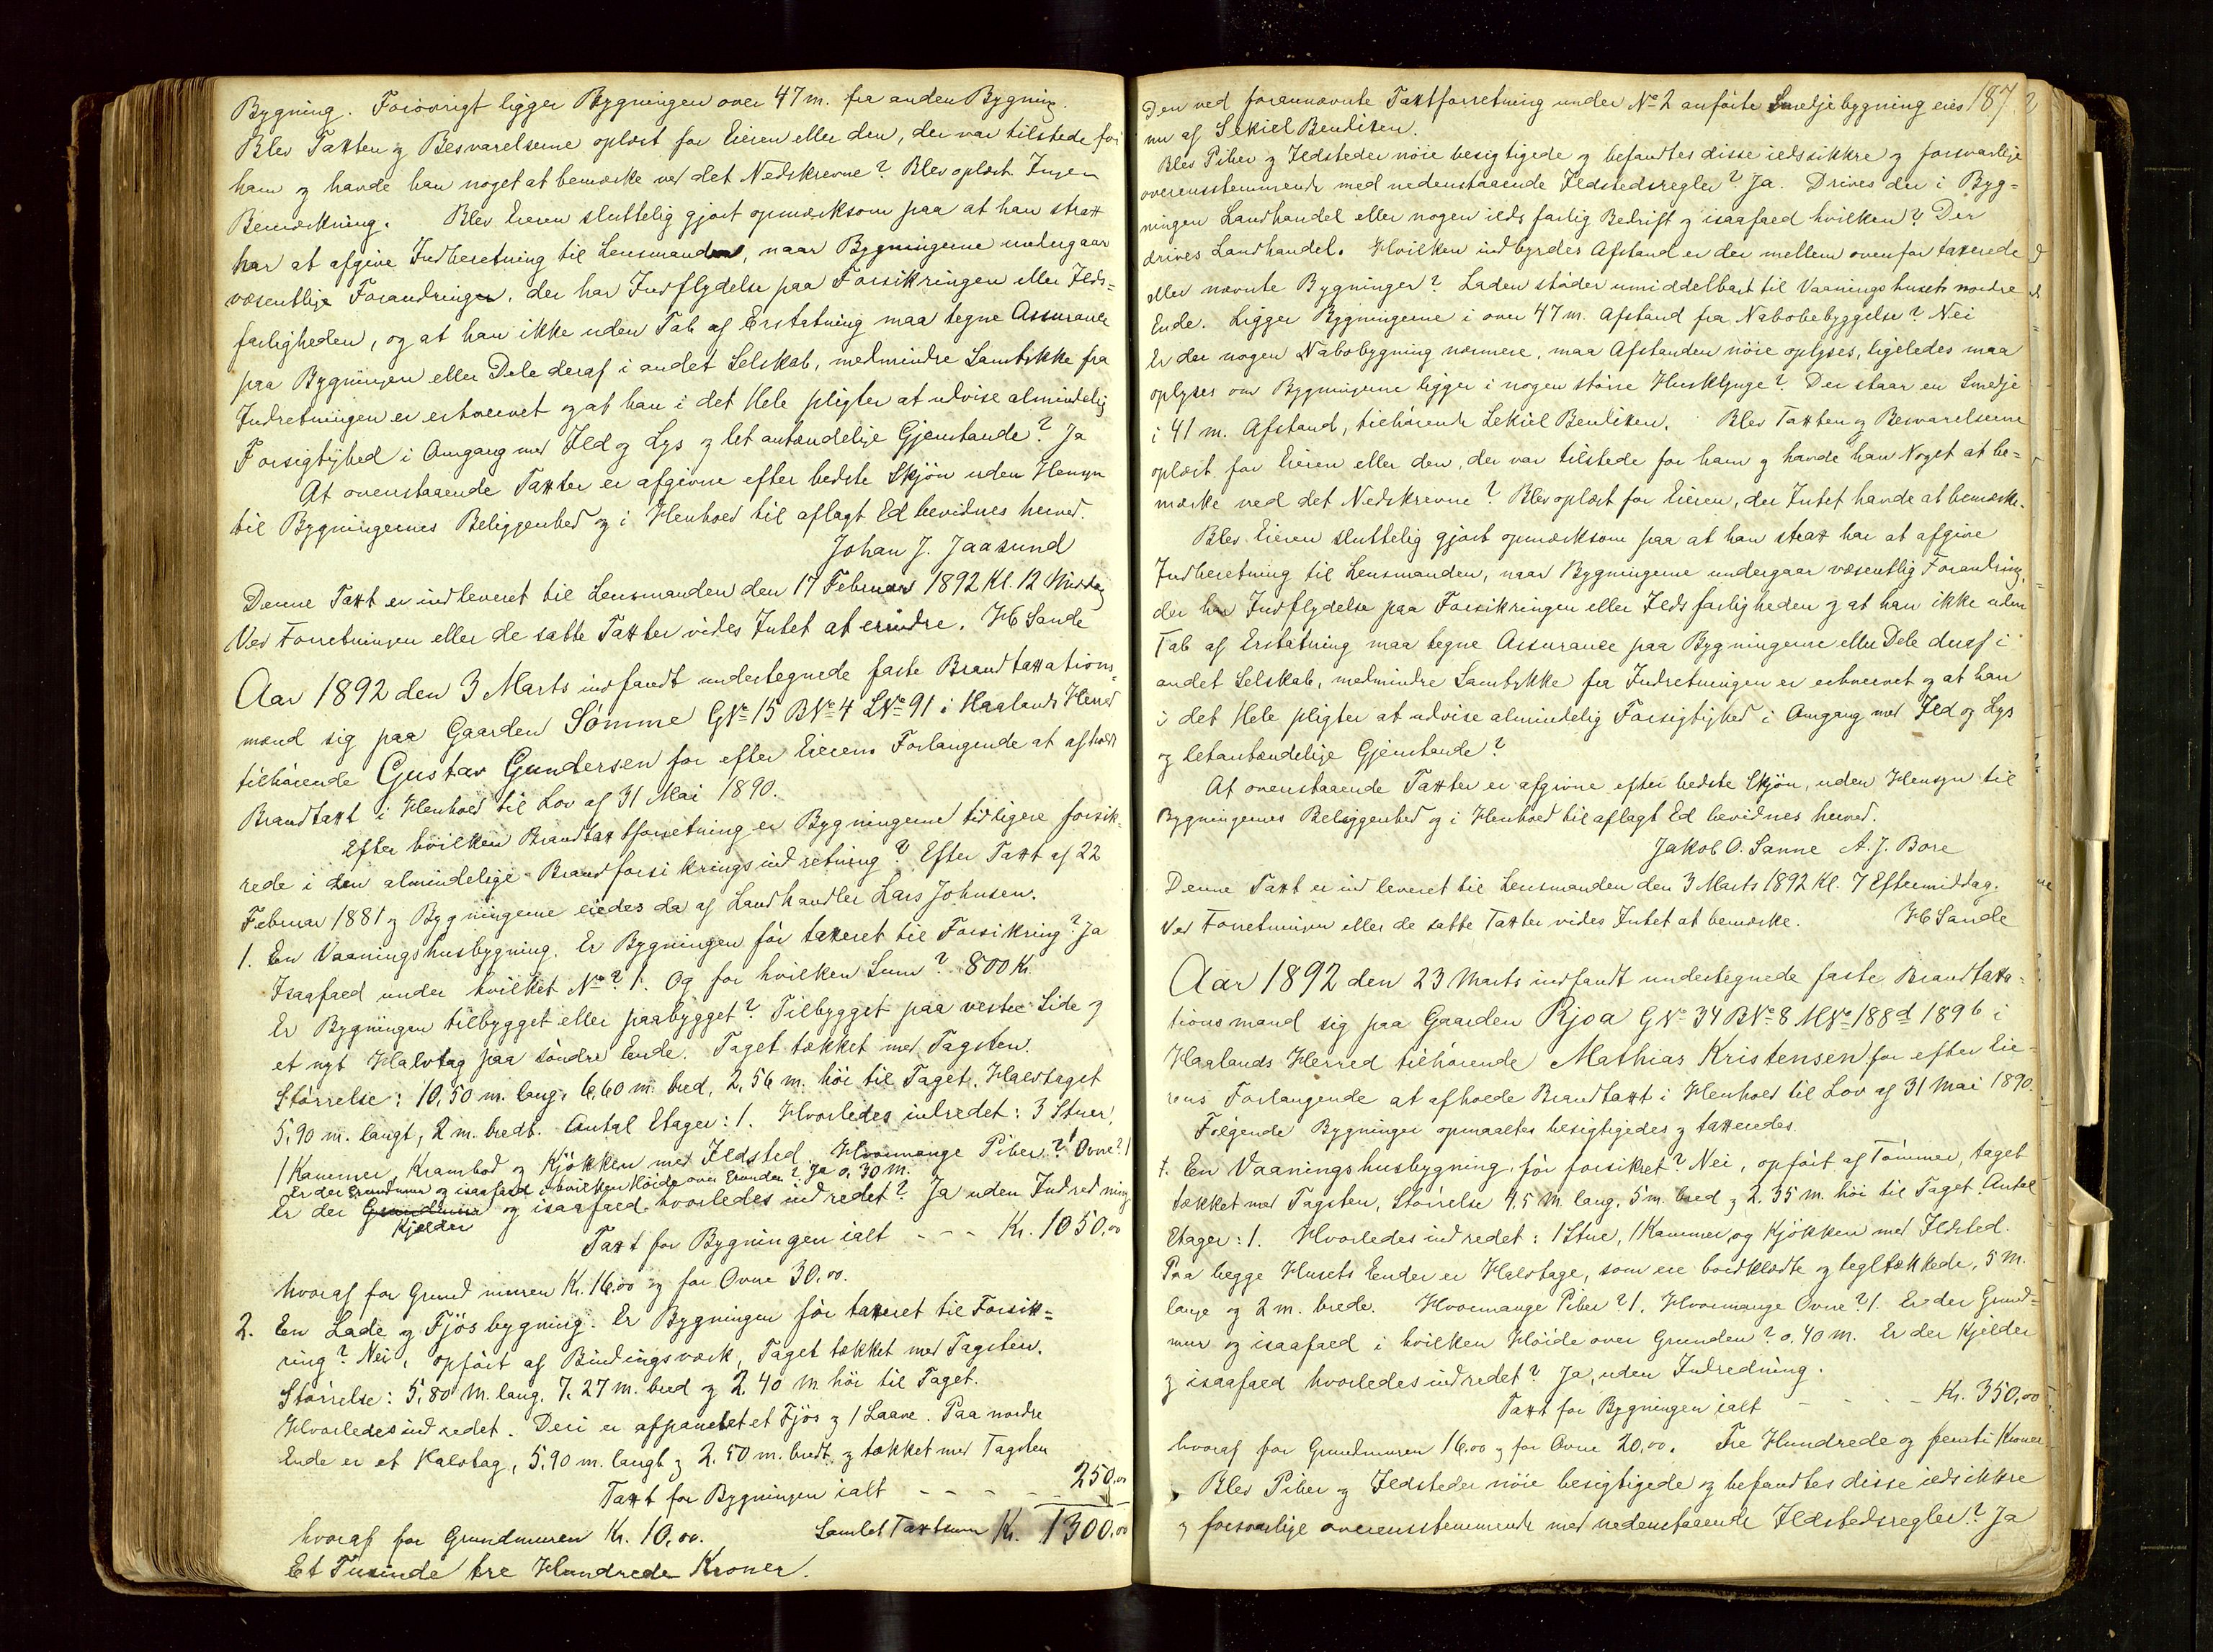 Bygning. Forövrigt ligger Bygningen over 47 m. fra anden Bygning.
Blev Taxten og Besvarelserne oplæst for Eieren eller den, der var tilstede for
ham og havde han noget at bemærke ved det Nedskrevne? Blev oplæst. Ingen
Bemærkning. Blev Eieren sluttelig gjort opmærksom paa at han strax
har at afgive Indberetning til Lensmanden, naar Bygningerne undergaar
væsentlige Forandringer, der har Indflydelse paa Forsikringen eller Ilds=
farligheden, og at han ikke uden Tab af Erstatning maa tegne Assurance
paa Bygningen eller Dele deraf i andet Selskab, medmindre Samtykke fra
Indretningen er erhvervet og at han i det Hele pligter at udvise almindelig
Forsigtighed i Omgang med Ild og Lys og let antændelige Gjenstande? Ja
At ovenstaaende Taxter er afgivne efter bedste Skjön uden Hensyn
til Bygningernes Beliggenhed og i Henhold til aflagt Ed bevidnes herved.
Johan J. Jaasund
Denne Taxt er indleveret til Lensmanden den 17 Februar 1892 Kl. 12 Middag
Ved Forretningen eller de satte Taxter vides Intet at erindre. H Sande
Aar 1892 den 3 Marts indfandt undertegnede faste Brandtaxations=
mænd sig paa Gaarden Sömme GNo 15 BNo 4 LNo 91 i Haalands Herred
tilhörende Gustav Gundersen for efter Eierens Forlangende at afholde
Brandtaxt i Henhold til Lov af 31 Mai 1890.
Efter hvilken Brandtaxtforretning er Bygningerne tidligere forsik=
rede i den almindelige Brandforsikringsindretning? Efter Taxt af 22
Februar 1881 og Bygningerne eiedes da af Landhandler Lars Johnsen.
1. En Vaaningshusbygning. Er Bygningen för taxeret til Forsikring? Ja
Isaafald under hvilket No? 1. Og for hvilken Sum? 800 Kr.
Er Bygningen tilbygget eller paabygget? Tilbygget paa vestre Side og
et nyt Halvtag paa söndre Ende. Taget tækket med Tagsten.
Störrelse: 10,50 m. lang, 6,60 m. bred, 2,56 m. höi til Taget. Halvtaget
5,90 m. langt, 2 m. bredt. Antal Etager: 1. Hvorledes indredet: 3 Stuer,
1 Kammer, Krambod og Kjökken med Ildsted. Hvormange Piber? 1 Ovne? 1
Er der Grundmur og isaafald i hvilken Höide over Grunden? Ja 0,30 m.
Er der Grundmur og isaafald hvorledes indredet? Ja uden Indredning
Kjælder
Taxt for Bygningen ialt - - - Kr. 1050,00
hvoraf for Grundmuren Kr. 16,00 og for Ovne 30,00.
2. En Lade og Fjösbygning. Er Bygningen för taxeret til Forsik=
ring? Nei, opfört af Bindingsværk, Taget tækket med Tagsten.
Störrelse: 5,80 m. lang, 7,27 m. bred og 2,40 m. höi til Taget.
Hvorledes indredet. Deri er afpanelet et Fjös og 1 Laave. Paa nordre
Ende er et Halvtag, 5,90 m. langt og 2,50 m. bredt og tækket med Tagsten
Taxt for Bygningen ialt - - - - - 250,00
hvoraf for Grundmuren Kr. 10,00. Samlet Taxtsum Kr. 1300,00
Et Tusinde tre Hundrede Kroner.
187
Den ved forannævnte Taxtforretning under No 2 anförte Smedjebygning eies
nu af Sekiel Bendixen.
Blev Piber og Ildsteder nöie besigtigede og befandtes disse ildssikkre og forsvarlige
overensstemmende med nedenstaaende Ildstedsregler? Ja. Drives der i Byg=
ningen Landhandel eller nogen ildsfarlig Bedrift og isaafald hvilken? Der
drives Landhandel. Hvilken indbyrdes Afstand er der mellem ovenfor taxerede
eller nævnte Bygninger? Laden stöder umiddelbart til Vaaningshusets nordre
Ende. Ligger Bygningerne i over 47 m. Afstand fra Nabobebyggelse? Nei
Er der nogen Nabobygning nærmere, maa Afstanden nöie oplyses, ligeledes maa
oplyses om Bygningerne ligger i nogen större Husklynge? Der staar en Smedje
i 41 m. Afstand, tilhörende Sekiel Bendixen. Blev Taxten og Besvarelserne
oplæst for Eieren eller den, der var tilstede for ham og havde han Noget at be=
mærke ved det Nedskrevne? Blev oplæst for Eieren, der Intet havde at bemærke.
Blev Eieren sluttelig gjort opmærksom paa at han strax har at afgive
Indberetning til Lensmanden, naar Bygningerne undergaar væsentlig Forandring,
der har Indflydelse paa Forsikringen eller Ildsfarligheden og at han ikke uden
Tab af Erstatning maa tegne Assurance paa Bygningerne eller Dele deraf i
andet Selskab, medmindre Samtykke fra Indretningen er erhvervet og at han
i det Hele pligter at udvise almindelig Forsigtighed i Omgang med Ild og Lys
og letantændelige Gjenstande?
At ovenstaaende Taxter er afgivne efter bedste Skjön, uden Hensyn til
Bygningernes Beliggenhed og i Henhold til aflagt Ed bevidnes herved.
Jakob O. Sanne A. J. Bore
Denne Taxt er indleveret til Lensmanden den 3 Marts 1892 Kl. 7 Eftermiddag.
Ved Forretningen eller de satte Taxter vides Intet at bemærke. H Sande
Aar 1892 den 23 Marts indfandt undertegnede faste Brandtaxa=
tionsmænd sig paa Gaarden Rjoa GNo 34 BNo 8 MNo 188d 189b i
Haalands Herred tilhörende Mathias Kristensen for efter Eie=
rens Forlangende at afholde Brandtaxt i Henhold til Lov af 31 Mai 1890.
Fölgende Bygninger opmaaltes besigtigedes og taxeredes.
1. En Vaaningshusbygning, för forsikret? Nei, opfört af Tömmer, taget
tækket med Tagsten, Störrelse 4,5 m. lang, 5 m. bred og 2,35 m. höi til Taget. Antal
Etager: 1. Hvorledes indredet: 1 Stue, 1 Kammer og Kjökken med Ildsted.
Paa begge Husets Ender er Halvtage, som ere bordklædte og tegltækkede, 5 m.
lange og 2 m. brede. Hvormange Piber? 1. Hvormange Ovne? 1. Er der Grund=
mur og isaafald i hvilken Höide over Grunden? 0,40 m. Er der Kjelder
og isaafald hvorledes indredet? Ja, uden Indredning.
Taxt for Bygningen ialt - - - - Kr. 350,00
hvoraf for Grundmuren 16,00 og for Ovne 20,00. Tre Hundrede og femti Kroner
Blev Piber og Ildsteder nöie besigtigede og befandtes disse ildssikkre
og forsvarlige overensstemmende med nedenstaaende Ildstedsregler? Ja